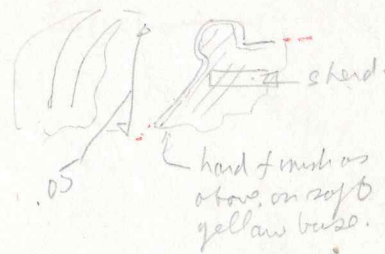 sherd.
.05
hard finish as
above, on soft
yellow base.